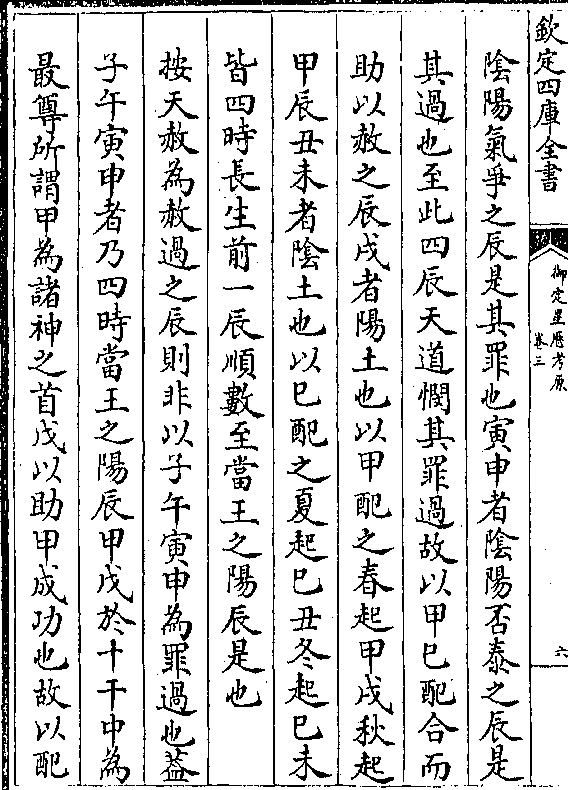 欽定四庫全書
御定星歷考原
卷三
六
陰陽氣爭之辰是其罪也寅申者陰陽否泰之辰是
其過也至此四辰天道憫其罪過故以甲巳配合而
助以赦之辰戌者陽土也以甲配之春起甲戌秋起
甲辰丑未者陰土也以巳配之夏起巳丑冬起巳未
皆四時長生前一辰順數至當王之陽辰是也
按天赦為赦過之辰則非以子午寅申為罪過也葢
子午寅申者乃四時當王之陽辰甲戊於十干中為
最尊所謂甲為諸神之首戊以助甲成功也故以配